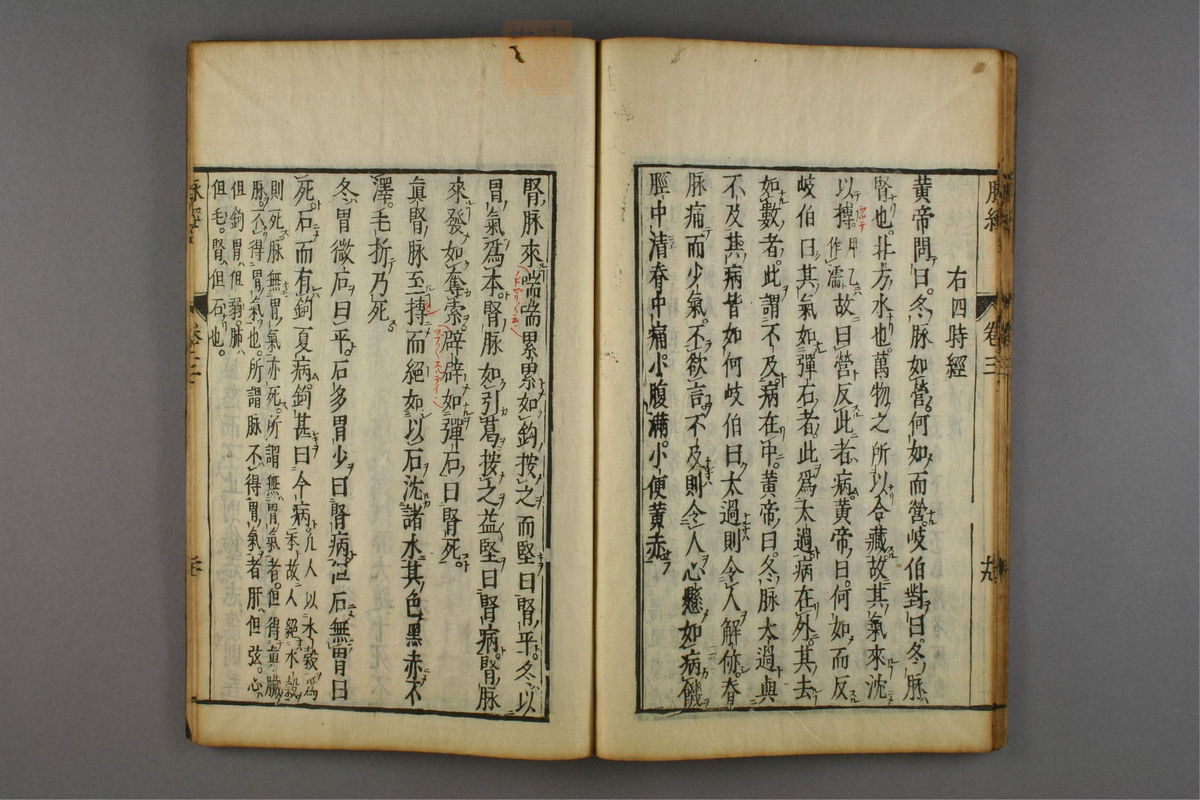 脉經
卷三
右四時經
黄帝問曰冬脉如營何如而營岐伯對曰冬脉
腎也北方水也萬物之所以合藏故其氣來沈
以搏甲乙作濡故曰營反此者病黄帝曰何如而反
岐伯曰其氣如彈石者此爲太過病在外其去
如數者此謂不及病在中黄帝曰冬脉太過與
不及其病皆如何岐伯曰太過則令人解㑊脊
脉痛而少氣不欲言不及則令人心懸如病饑
䏚中清脊中痛小腹滿小便黄赤
腎脉來喘喘累累如鈎按之而堅曰腎平冬以
胃氣爲本腎脉如引葛按之益堅曰腎病腎脉
來發如奪索辟辟如彈石曰腎死
真腎脉至搏而絶如以石沈諸水其色黑赤不
澤毛折乃死
冬胃微石曰平石多胃少曰腎病但石無胃曰
死石而有鈎曰夏病鈎甚曰今病凡人以水穀爲
本故人絶水穀
則死脉無胃氣亦死所謂無胃氣者但得真臟
脉不得胃氣也所謂脉不得胃氣者肝但弦心
但鈎胃但弱肺
但毛腎但石也
脉經
卷三